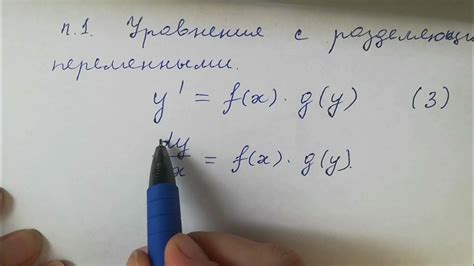 п.1. Уравнения с разделяющи
переменными.
y' = f(x) · g(y) (3)
dy/x = f(x) · g(y).